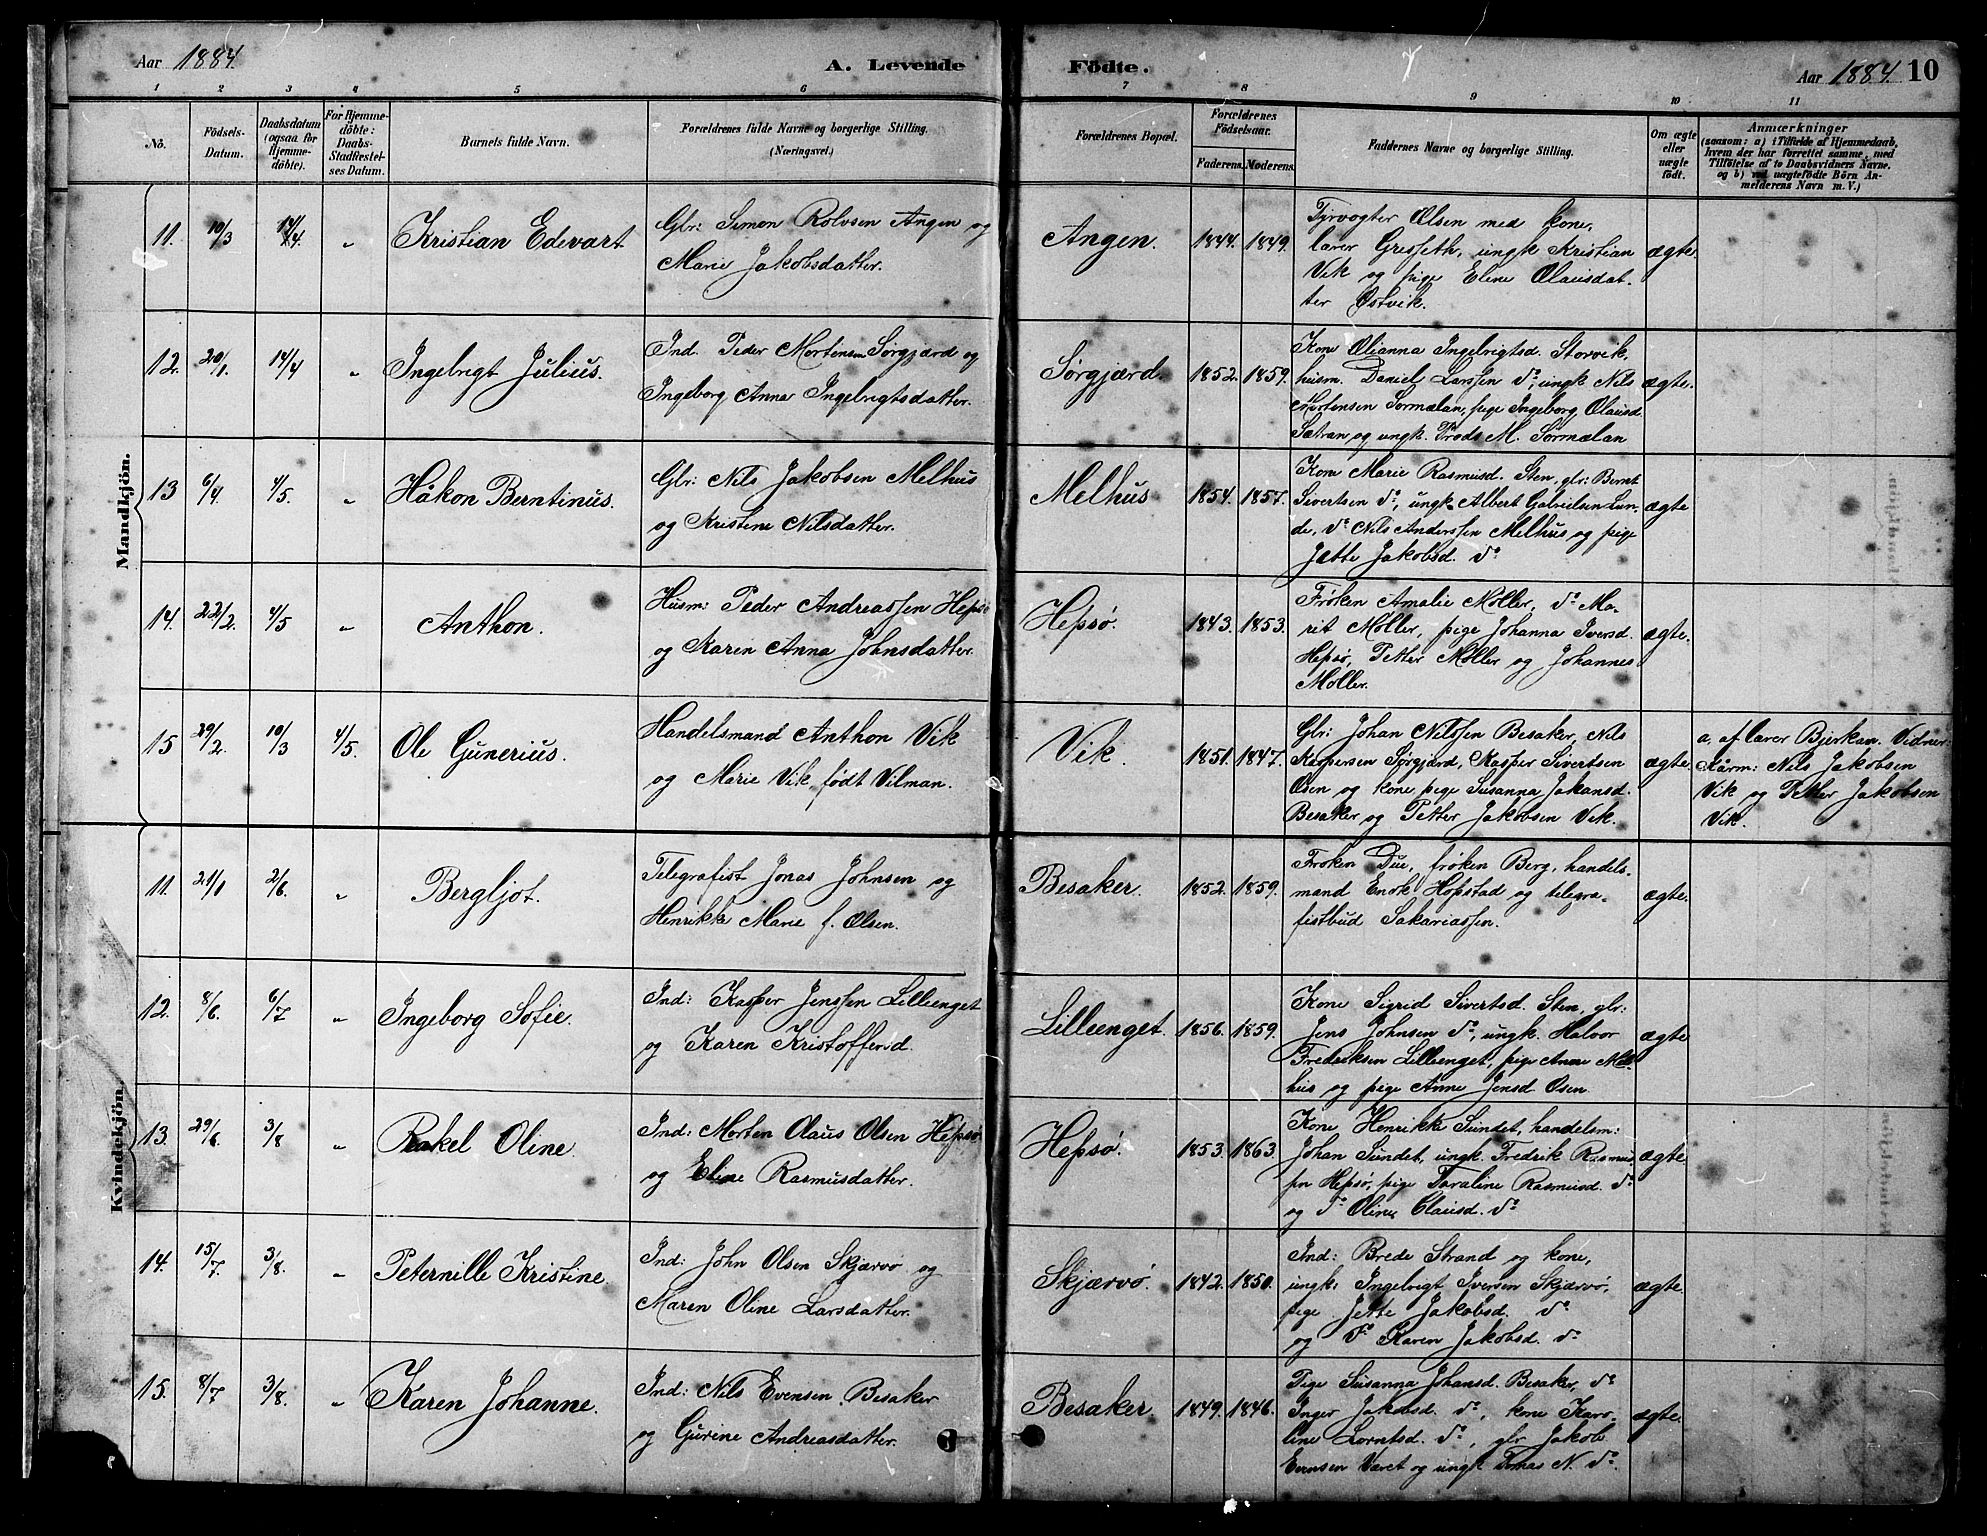 Aar 1884. A. Levende Födte. Aar 1884. 10
1 2 3 4 5 6 7 8 9 10 11
No. Födsels-Datum. Daabsdatum (ogsaa for Hjemmedöbte). For Hjemmedöbte: Daabs-Stadfæstelses Datum. Barnets fulde Navn. Forældrenes fulde Navne og borgerlige Stilling. (Næringsvei.) Forældrenes Bopæl. Forældrenes Födselsaar. Faderens. Moderens. Faddernes Navne og borgerlige Stilling. Om ægte eller uægte födt. Anmærkninger (saasom: a) i Tilfælde af Hjemmedaab, hvem der har forrettet samme, med Tilföielse af to Daabsvidners Navne, og b) ved uægtefödte Börn Anmelderens Navn m. V.)
Mandkjön.
11. 10/3 14/4 " Kristian Edevart
Glr: Simon Rolvsen Angen og
Marie Jakobsdatter.
Angen. 1844. 1849.
Fyrvogter Olsen med kone,
lærer Gresseth, ungk. Kristian
Vik og pige Eline Olausdat-
ter Østvik.
ægte.
12. 20/1. 14/4 " Ingebrigt Julius.
Ind. Peder Mortensen Sørgjærd og
Ingeborg Anna Ingebrigtsdatter.
Sørgjærd. 1852. 1859.
Kone Olianna Ingebrigtsd. Storvik,
husm. Daniel Larssen do, ungk. Nils
Mortensen Sørmælan, pige Ingeborg Olausd.
Sætran og ungk. Trods M. Sørmælan
ægte.
13 6/4. 4/5. " Håkon Berntinus.
Glr: Nils Jakobsen Melhus
og Kristine Nilsdatter.
Melhus 1854. 1857.
Kone Marie Rasmusd. Sten, glr: Bernt
Sivertsen do, ungk. Albert Gabrielsen Lun-
de, do Nils Anderssen Melhus og pige
Jette Jakobsd. do
ægte
14. 22/2. 4/5 " Anthon.
Husm: Peder Andreassen Hepsø
og Karen Anna Johnsdatter.
Hepsø. 1843. 1853.
Frøken Amalie Møller, do Ma-
rit Møller, pige Johanna Iversd.
Hepsø, Petter Møller og Johannes
Møller.
ægte.
15 29/2. 10/3 4/5. Ole Gunerius.
Handelsmand Anthon Vik
og Marie Vik født Vilman.
Vik. 1851. 1847.
Glr: Johan Nilssen Besaker, Nils
Kaspersen Sørgjærd, Kasper Sivertsen
Osen og kone, pige Susanna Johansd.
Besaker og Petter Jakobsen Vik.
ægte.
a, af lærer Bjerkan. Vidner:
Kårm: Nils Jakobsen
Vik og Petter Jakobsen
Vik.
Kvindekjön.
11. 21/1 2/6. " Bergljot.
Telegrafist Jonas Johnsen og
Henrikke Marie f. Olsen.
Besaker. 1852. 1859.
Frøken Due, frøken Berg, handels-
mand Enok Hopstad og telegra-
fistbud Sakariassen.
ægte.
12. 8/6. 6/7 " Ingeborg Sofie.
Ind: Kasper Jenssen Lilleenget
og Karen Kristoffersd.
Lilleenget. 1856. 1859.
Kone Sigrid Sivertsd. Sten, glr:
Jens Johnsen do, ungk. Halvor
Fredriksen Lilleenget, pige Anne Mel-
hus og pige Anne Jensd. Osen
ægte
13. 29/6. 3/8 " Rakel Oline
Ind: Morten Olaus Olsen Hepsø
og Eline Rasmusdatter.
Hepsø. 1853. 1863.
Kone Henrikke Sundet, handelsm:
Johan Sundet, ungk. Fredrik Rasmus-
sen Hepsø, pige Taraline Rasmusd. do
og do Oline Olausd. do
ægte
14. 15/7. 3/8. " Peternille Kristine
Ind: John Olsen Skjærvø og
Maren Oline Larsdatter.
Skjærvø. 1842. 1850.
Ind: Brede Strand og kone,
ungk: Ingebrigt Iversen Skjærvø,
pige Jette Jakobsd. do
og do Karen Jakobsd. do
ægte.
15. 8/7 3/8. " Karen Johanne.
Ind: Nils Evensen Besaker
og Gurine Andreasdatter.
Besaker 1849. 1846.
Pige Susanna Johansd. Besaker, do
Inger Jakobsd. do, kone Karo-
line Lorntsd. do, glr Jakob
Evensen Været og ungk Tomas N. do
ægte.